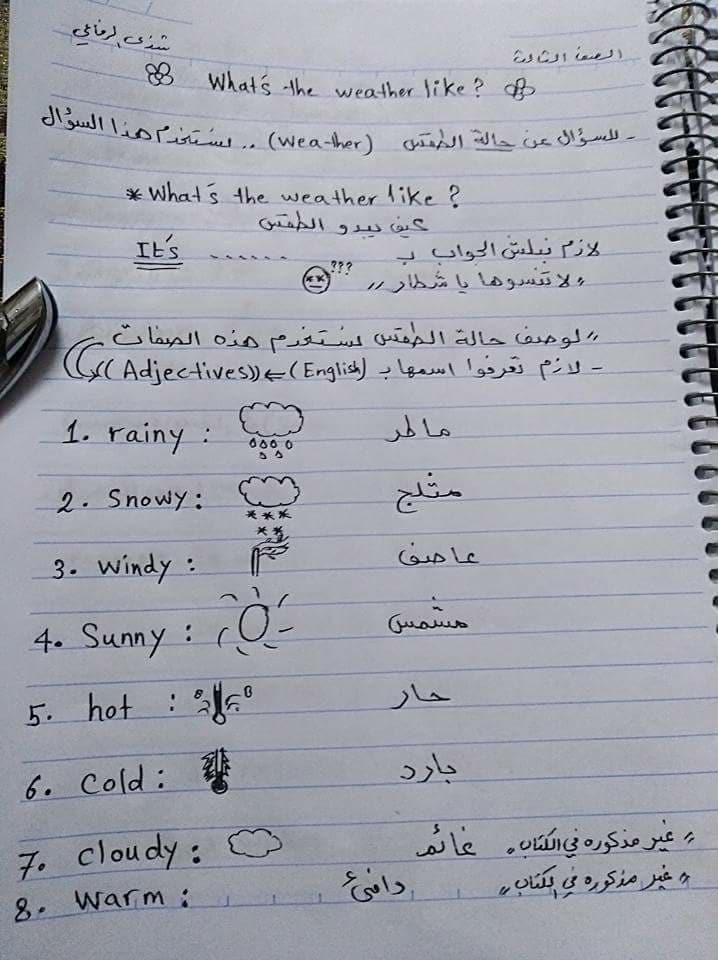 شذى الرفاعي
الصف الثالث
What's the weather like?
- للسؤال عن حالة الطقس (weather) .. يستخدم هذا السؤال
* What's the weather like?
كيف يبدو الطقس
لازم نبلش الجواب ب It's ......
"لا تنسوها يا شطار" ???
"لوصف حالة الطقس يستخدم هذه الصفات
- لازم تعرفوا اسمها ب (English) ← ((Adjectives))
1. rainy : ماطر
2. Snowy : مثلج
3. windy : عاصف
4. Sunny : مشمس
5. hot : حار
6. Cold : بارد
7. cloudy : غائم "غير مذكوره في الكتاب"
8. warm : دافئ "غير مذكوره في الكتاب"